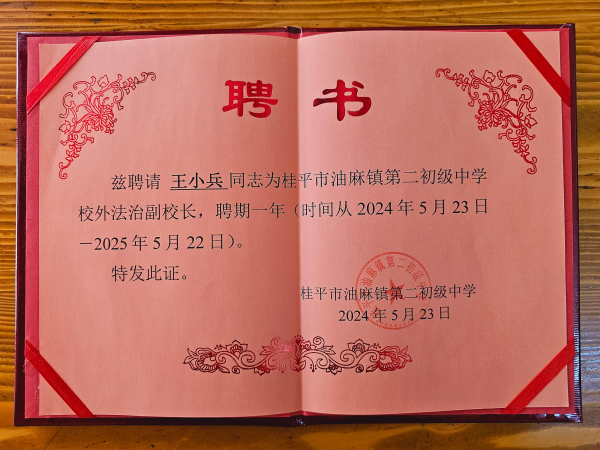 聘书
兹聘请 王小兵 同志为桂平市油麻镇第二初级中学
校外法治副校长，聘期一年（时间从 2024 年 5 月 23 日
－2025 年 5 月 22 日）。
特发此证。
桂平市油麻镇第二初级中学
2024 年 5 月 23 日